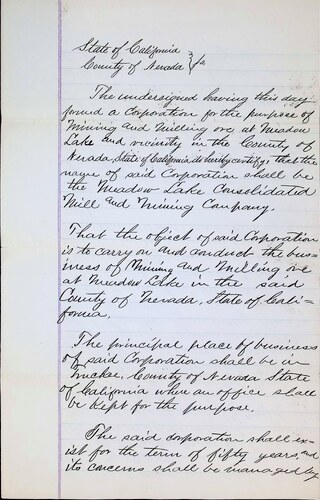 State of California
County of Nevada } ss
The undersigned having this day
formed a Corporation for the purpose of
Mining and Milling ore at Meadow
Lake and vicinity in the County of
Nevada, State of California do hereby certify, that the
name of said Corporation shall be
the Meadow Lake Consolidated
Mill and Mining Company.
That the object of said Corporation
is to carry on and conduct the bus-
iness of Mining and Milling ore
at Meadow Lake in the said
County of Nevada, State of Cali-
fornia.
The principal place of business
of said Corporation shall be in
Truckee, County of Nevada State
of California where an office shall
be kept for the purpose.
The said corporation shall ex-
ist for the term of fifty years, and
its concerns shall be managed by